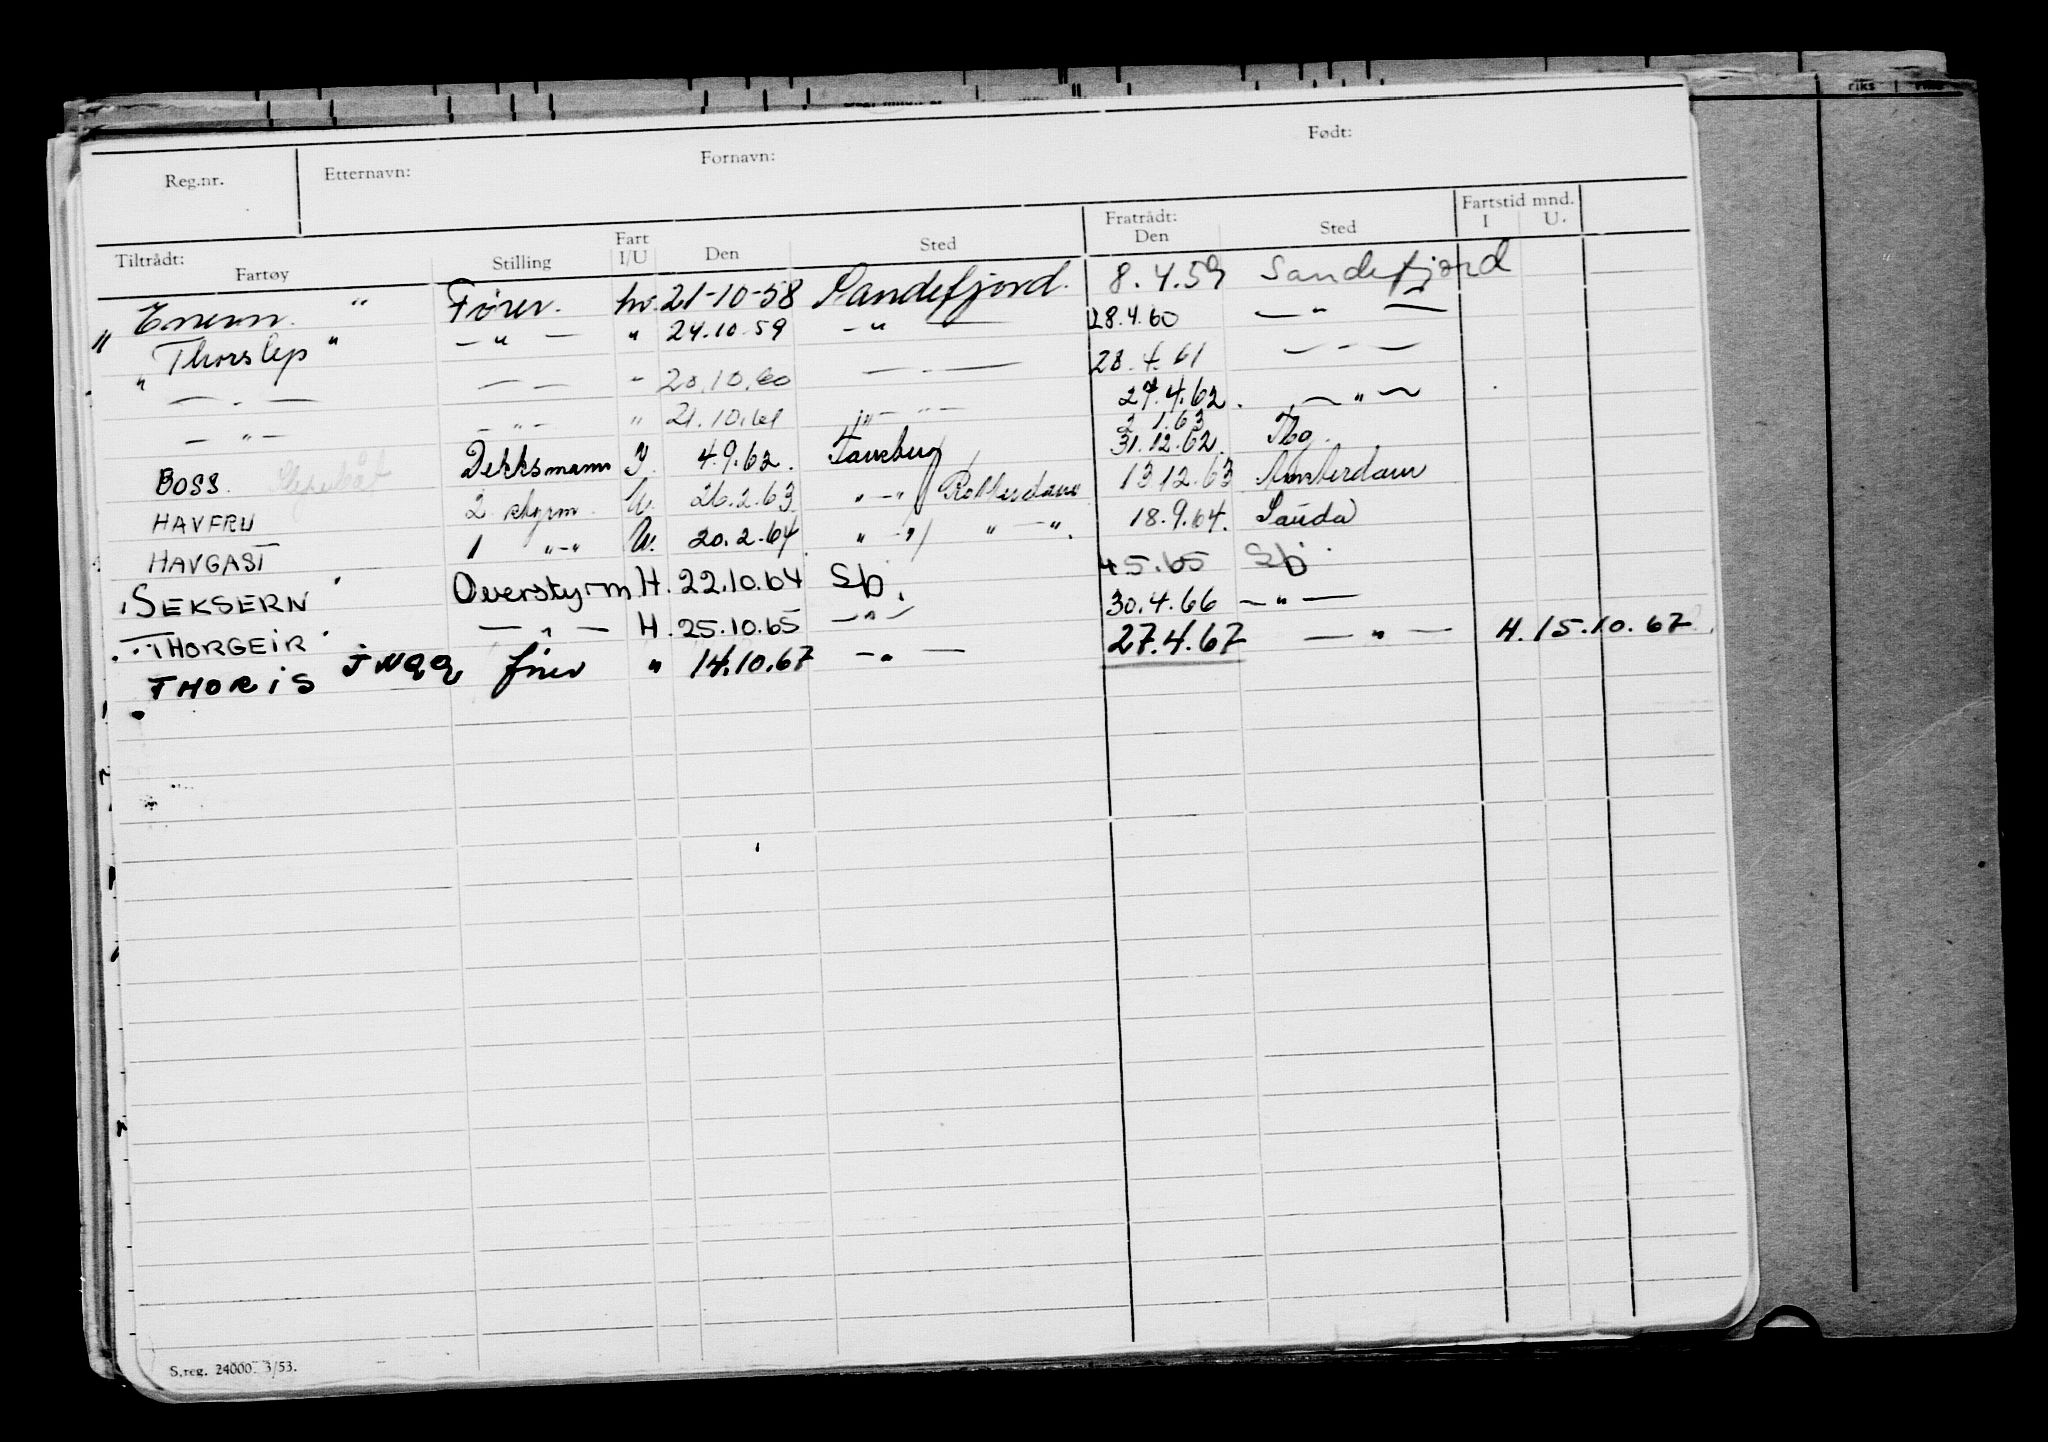 Reg.nr. Etternavn: Fornavn: Født:
Tiltrådt: Fartøy Stilling Fart I/U Den Sted Fratrådt: Den Sted Fartstid mnd. I U.
" Enern " Fører. hv. 21-10-58 Sandefjord. 8.4.59 Sandefjord
" Thorslep " — " — " 24.10.59 — " — 28.4.60 — " —
— " — — — " 20.10.60 — " — 28.4.61 — " —
— " — — " — " 21.10.61 — " — 27.4.62. — " —
2.1.63
BOSS. Slepebåt Dekksmann I. 4.9.62. Tønsberg 31.12.62. Tbg.
HAVFRU 2 styrm. U. 26.2.63 " — " / Rotterdam 13.12.63 Amsterdam
HAVGAST 1 " — " U. 20.2.64. " — " / " — ". 18.9.64. Sauda
"SEKSERN" Overstyrm H. 22.10.64 Sfj. 4.5.65 Sfj.
"THORGEIR" — " — H. 25.10.65 — " — 30.4.66 — " —
THORIS fører " 14.10.67 — " — 27.4.67 — " — H. 15.10.67
S.reg. 24000. 3/53.
riks